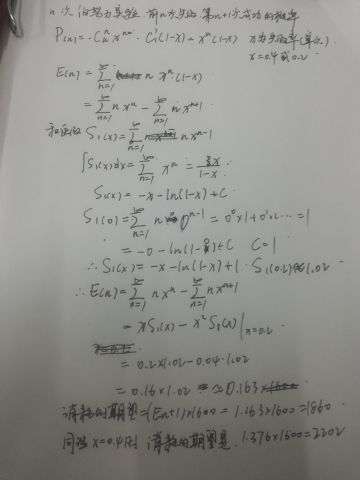 n次伯努力实验 前n次失败 第n+1次成功的概率
P(n) = C_n^n x^n · C_1^1 (1-x) = x^n (1-x) x为失败率(单次)
x=0.4或0.2
E(n) = ∑_{n=1}^∞ n x^n · (1-x)
= ∑_{n=1}^∞ n x^n - ∑_{n=1}^∞ n x^{n+1}
和函数 S_1(x) = ∑_{n=1}^∞ n x^{n-1}
∫S_1(x)dx = ∑_{n=1}^∞ x^n = x/(1-x)
S_1(x) = -x - ln(1-x) + C
S_1(0) = ∑_{n=1}^∞ n 0^{n-1} = 0^0×1 + 0^1×2... = 1
= -0 - ln(1-0) + C C=1
∴ S_1(x) = -x - ln(1-x) + 1 · S_1(0.2) ≈ 1.02
∴ E(n) = ∑_{n=1}^∞ n x^n - ∑_{n=1}^∞ n x^{n+1}
= xS_1(x) - x^2 S_1(x) |_{x=0.2}
= 0.2×1.02 - 0.04·1.02
= 0.16×1.02 ≈ 0.163
消耗的期望=(En+1)×1600 = 1.163×1600 = 1860
同理 x=0.4时 消耗的期望是 1.376×1600 = 2202